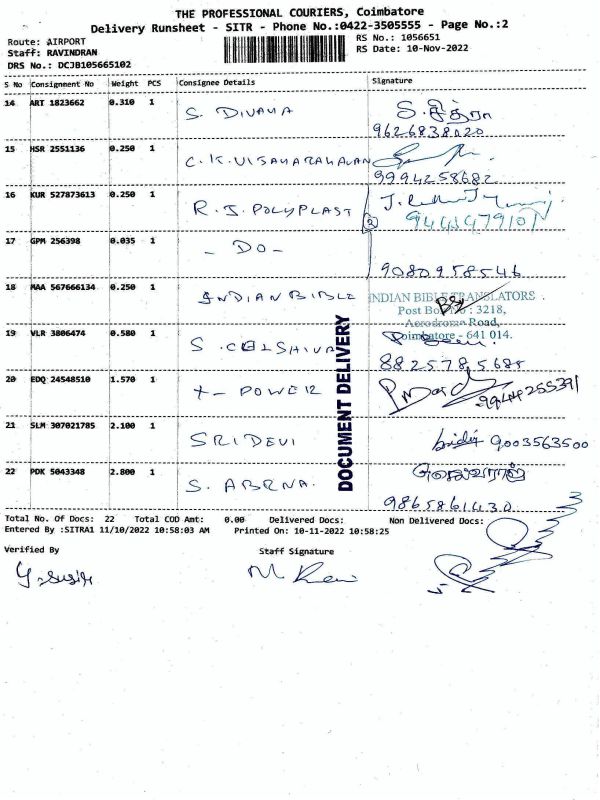 THE PROFESSIONAL COURIERS, Coimbatore
Delivery Runsheet - SITR - Phone No.:0422-3505555 - Page No.:2
Route: AIRPORT
RS No.: 1056651
Staff: RAVINDRAN
RS Date: 10-Nov-2022
DRS No.: DCJB105665102
S No Consignment No Weight PCS Consignee Details Signature
14 ART 1823662 0.310 1 S. DIVAHA S. சித்ரா
9626838020
15 HSR 2551136 0.250 1 C.K.
9994258682
16 KUR 527873613 0.250 1 R.J. POLYPLAST
2 9444479101
17 GPM 256398 0.035 1 - DO -
9080958546
18 MAA 567666134 0.250 1 INDIAN BIBLE INDIAN BIBLE TRANSLATORS
Post Box No : 3218,
Aerodrome Road,
Coimbatore - 641 014.
19 VLR 3806474 0.580 1 S.
8825785685
20 EDQ 24548510 1.570 1 X - POWER
21 SLM 307021785 2.100 1 SRIDEVI 9003563500
22 PDK 5043348 2.800 1 S. ABRNA. செல்வராஜ்
9865861430
DOCUMENT DELIVERY
Total No. Of Docs: 22 Total COD Amt: 0.00 Delivered Docs: Non Delivered Docs:
Entered By :SITRA1 11/10/2022 10:58:03 AM Printed On: 10-11-2022 10:58:25
Verified By Staff Signature